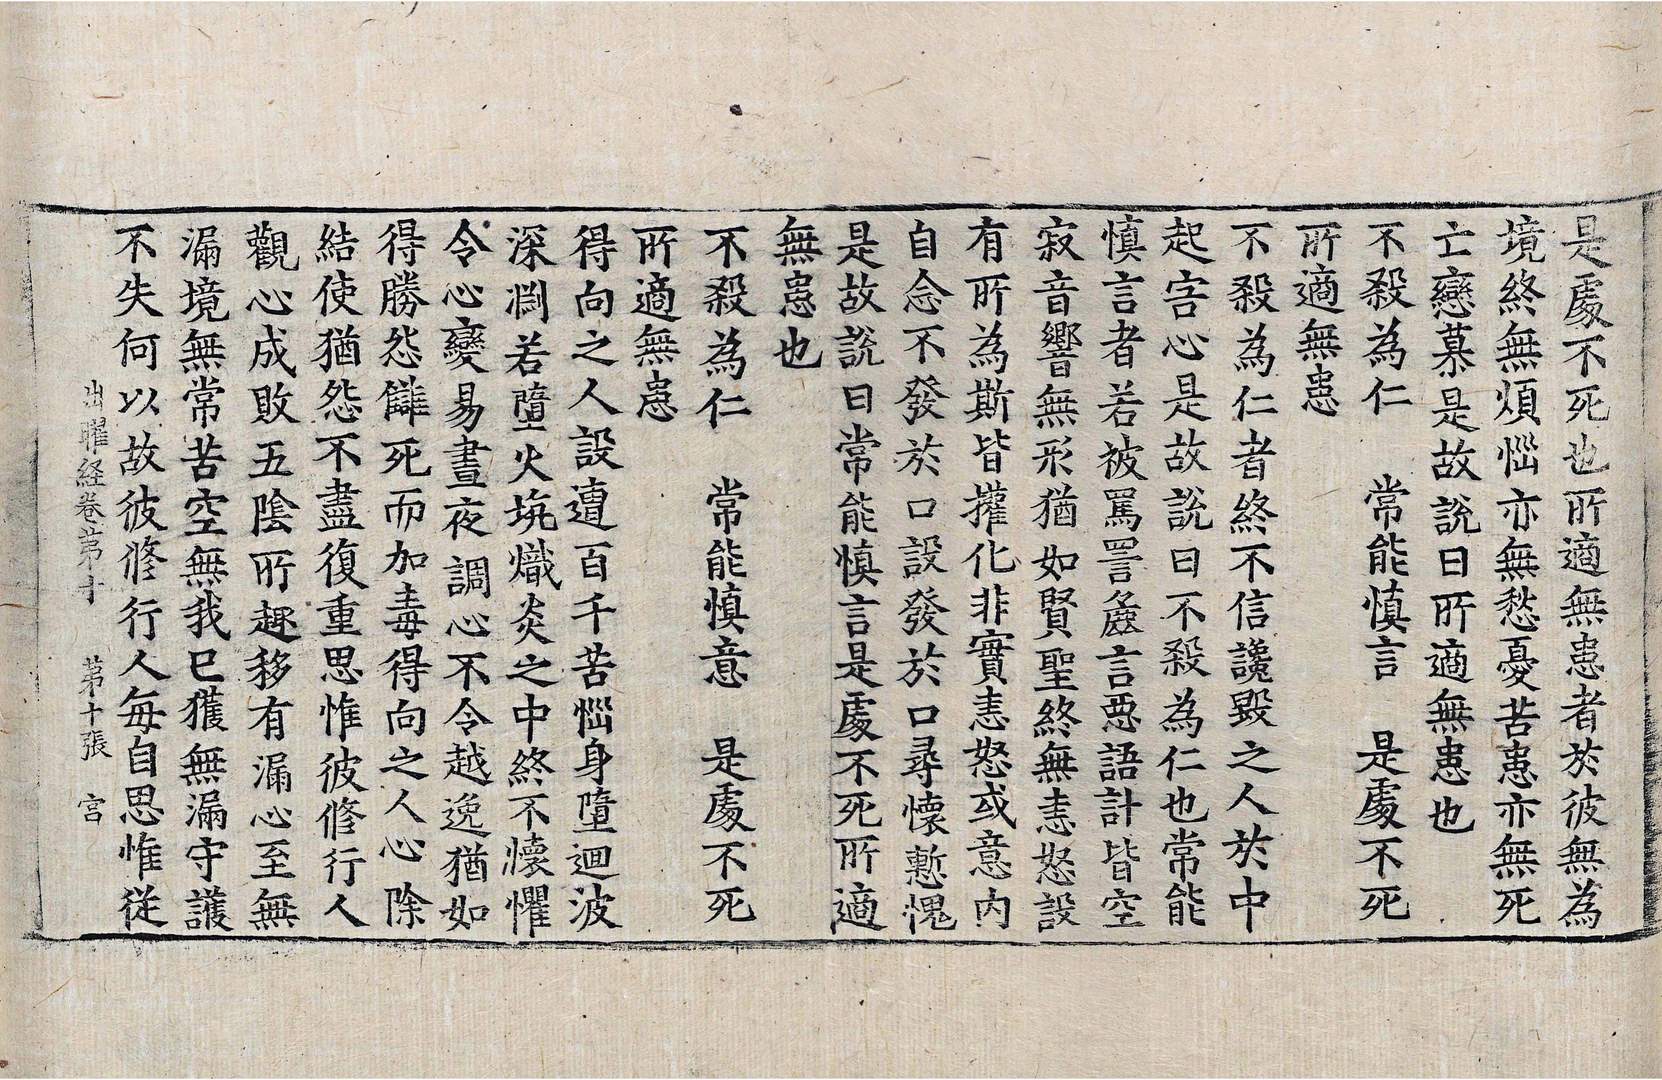 是處不死也所適無患者於彼無為
境終無煩惱亦無愁憂苦患亦無死
亡戀慕是故說曰所適無患也
不殺為仁　常能慎言　是處不死
所適無患
不殺為仁者終不信讒毀之人於中
起害心是故說曰不殺為仁也常能
慎言者若被罵詈麁言惡語計皆空
寂音響無形猶如賢聖終無恚怒設
有所為斯皆權化非實恚怒或意內
自念不發於口設發於口尋懷慙愧
是故說曰常能慎言是處不死所適
無患也
不殺為仁　常能慎意　是處不死
所適無患
得向之人設遭百千苦惱身墮迴波
深淵若墮火坑熾炎之中終不懷懼
令心變易晝夜調心不令越逸猶如
得勝怨讎死而加毒得向之人心除
結使猶怨不盡復重思惟彼修行人
觀心成敗五陰所趣移有漏心至無
漏境無常苦空無我已獲無漏守護
不失何以故彼修行人每自思惟從
出曜経卷第十　第十張　宮